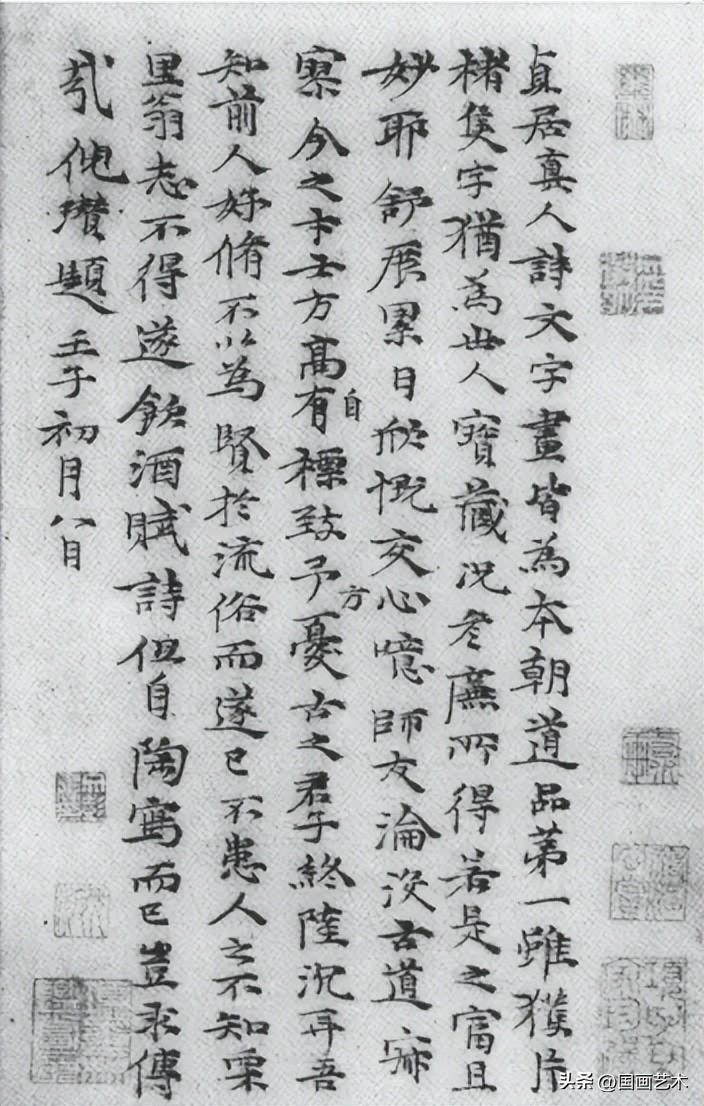 貞居真人詩文字畫皆為本朝道品第一雖獲片
楮隻字猶為世人寶藏況彥廉所得若是之富且
妙耶舒展累日欣慨交心噫師友淪沒古道寂
寞今之才士方高自有標致予方憂古之君子終陸沉耳吾
知前人好脩不以為賢於流俗而遂已不患人之不知栗
里翁志不得遂飲酒賦詩但自陶寫而已豈求傳
哉倪瓚題壬子初月八日
头条 @国画艺术